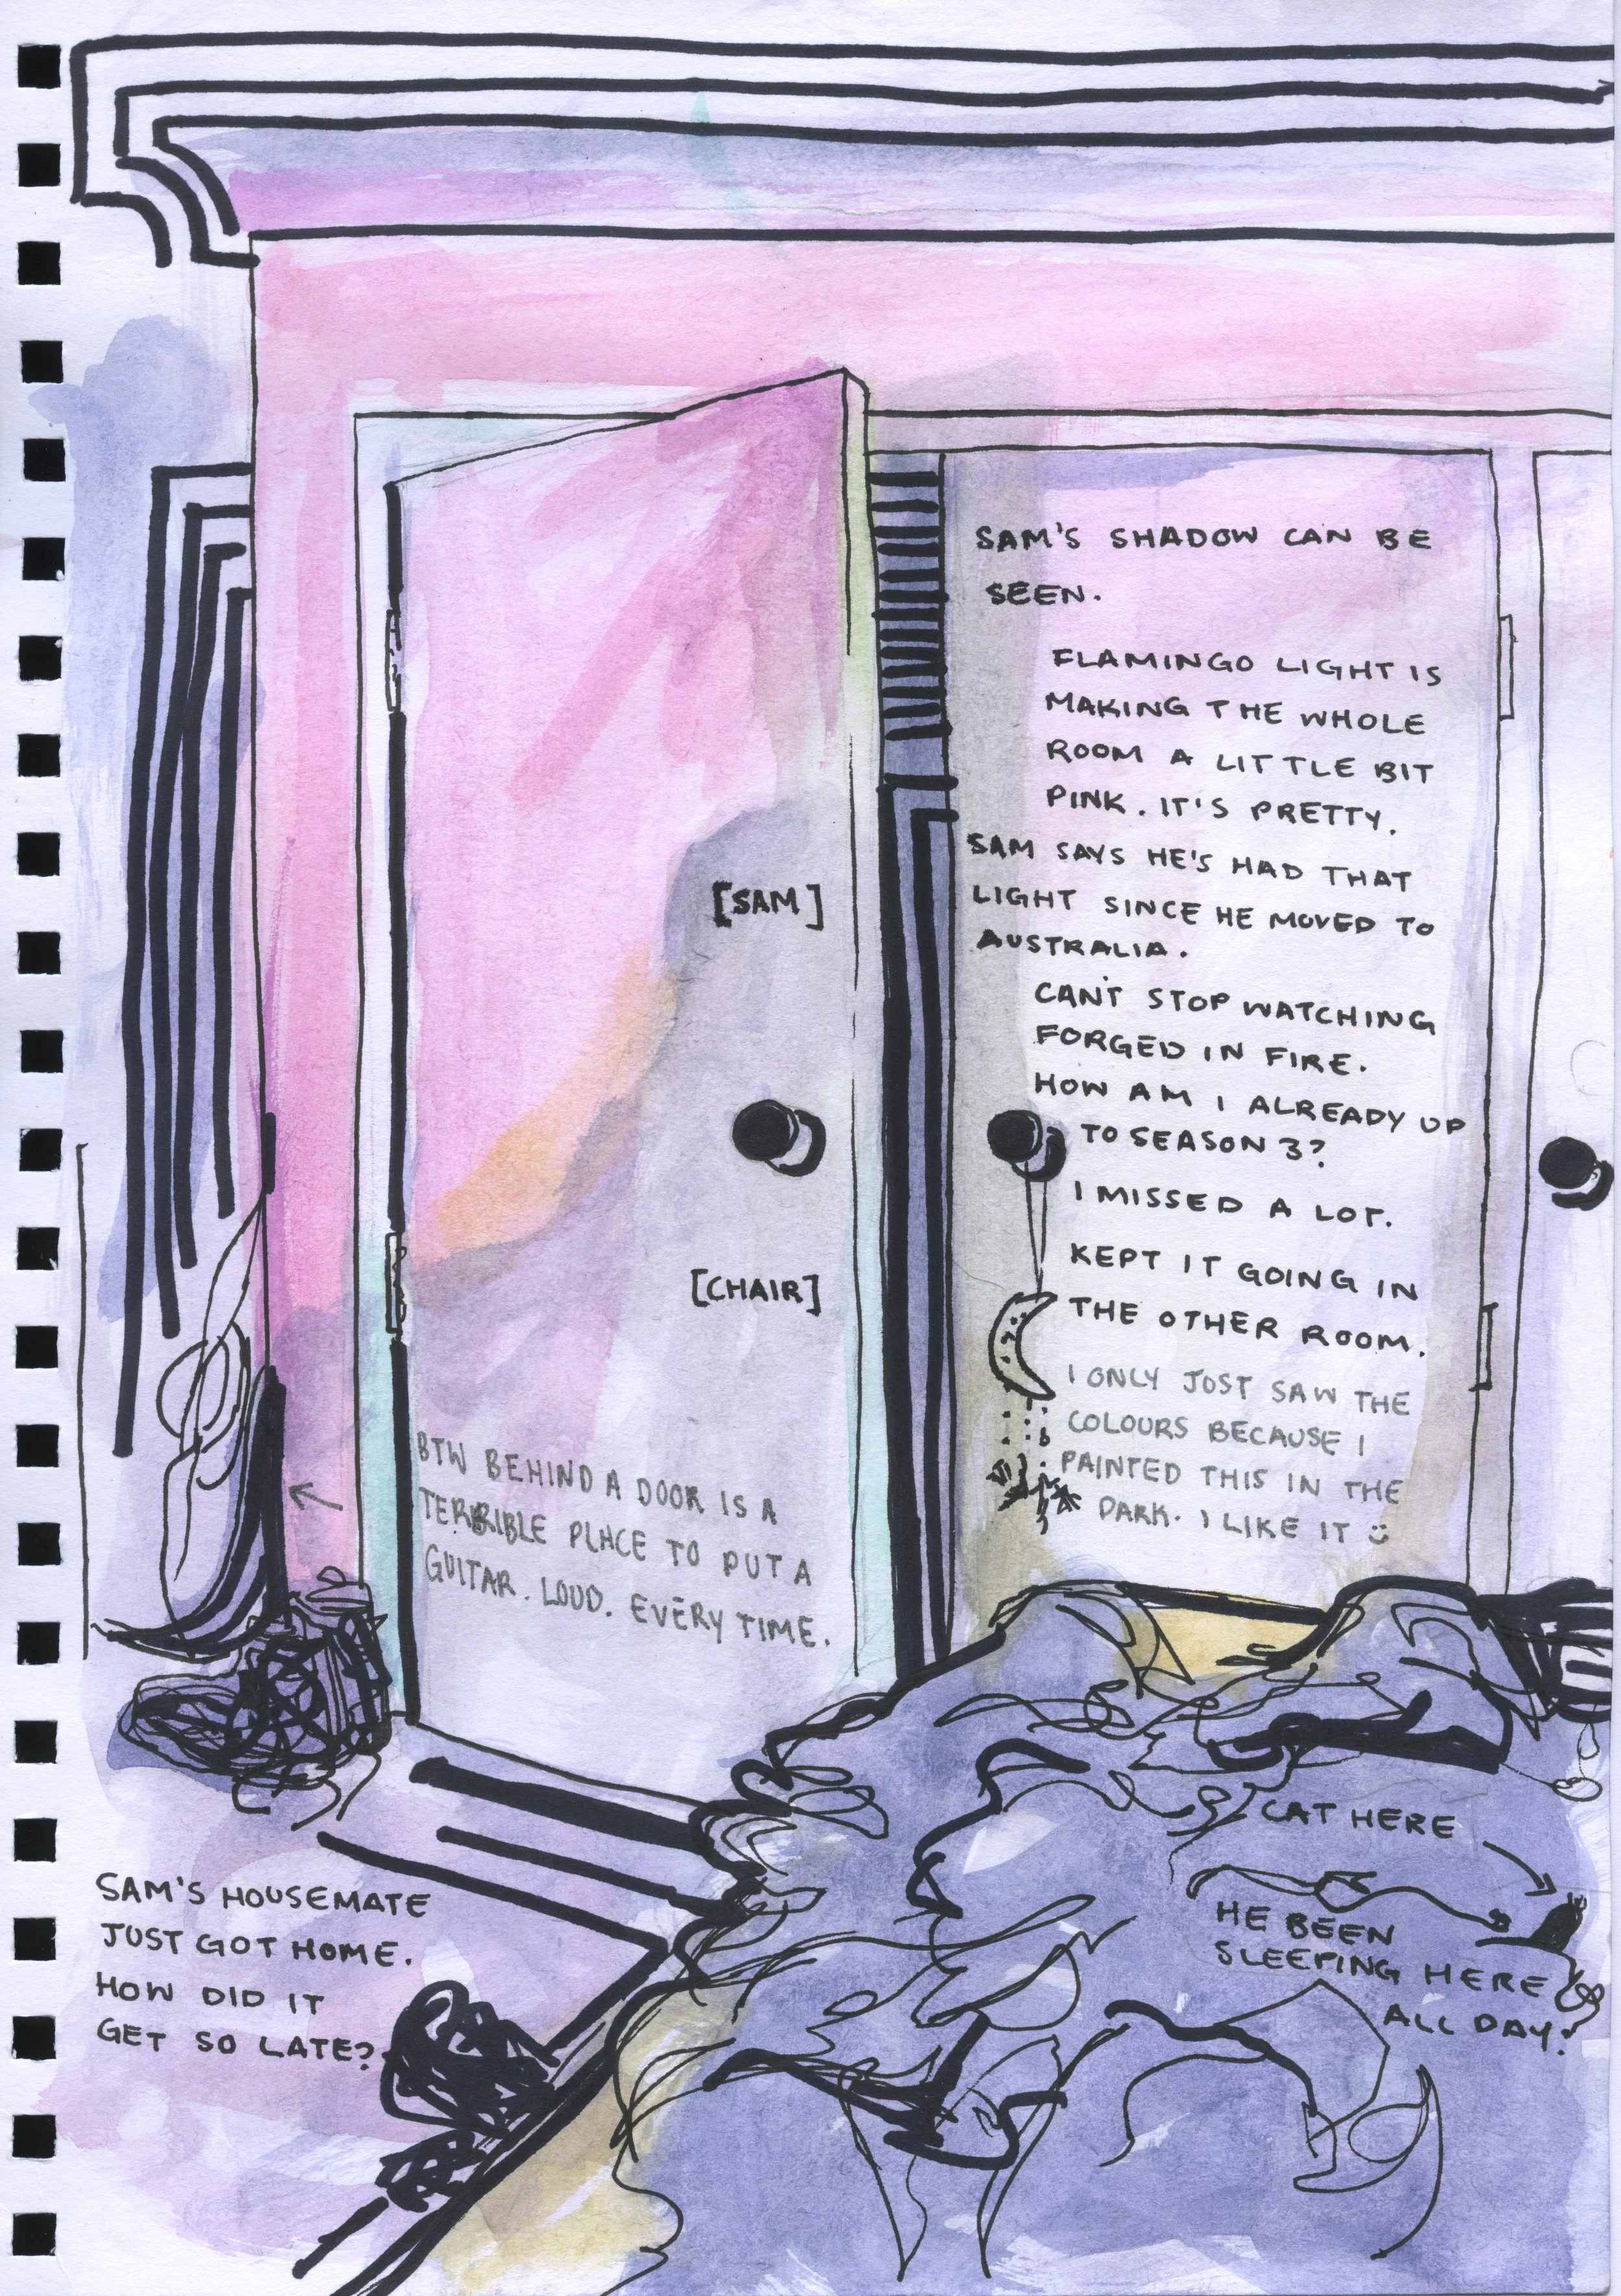 SAM'S SHADOW CAN BE
SEEN.
FLAMINGO LIGHT IS
MAKING THE WHOLE
ROOM A LITTLE BIT
PINK. IT'S PRETTY.
SAM SAYS HE'S HAD THAT
LIGHT SINCE HE MOVED TO
AUSTRALIA.
CAN'T STOP WATCHING
FORGED IN FIRE.
HOW AM I ALREADY UP
TO SEASON 3?
I MISSED A LOT.
KEPT IT GOING IN
THE OTHER ROOM.
I ONLY JUST SAW THE
COLOURS BECAUSE I
PAINTED THIS IN THE
DARK. I LIKE IT :)
[SAM]
[CHAIR]
BTW BEHIND A DOOR IS A
TERRIBLE PLACE TO PUT A
GUITAR. LOUD. EVERY TIME.
CAT HERE
HE BEEN
SLEEPING HERE
ALL DAY!
SAM'S HOUSEMATE
JUST GOT HOME.
HOW DID IT
GET SO LATE?